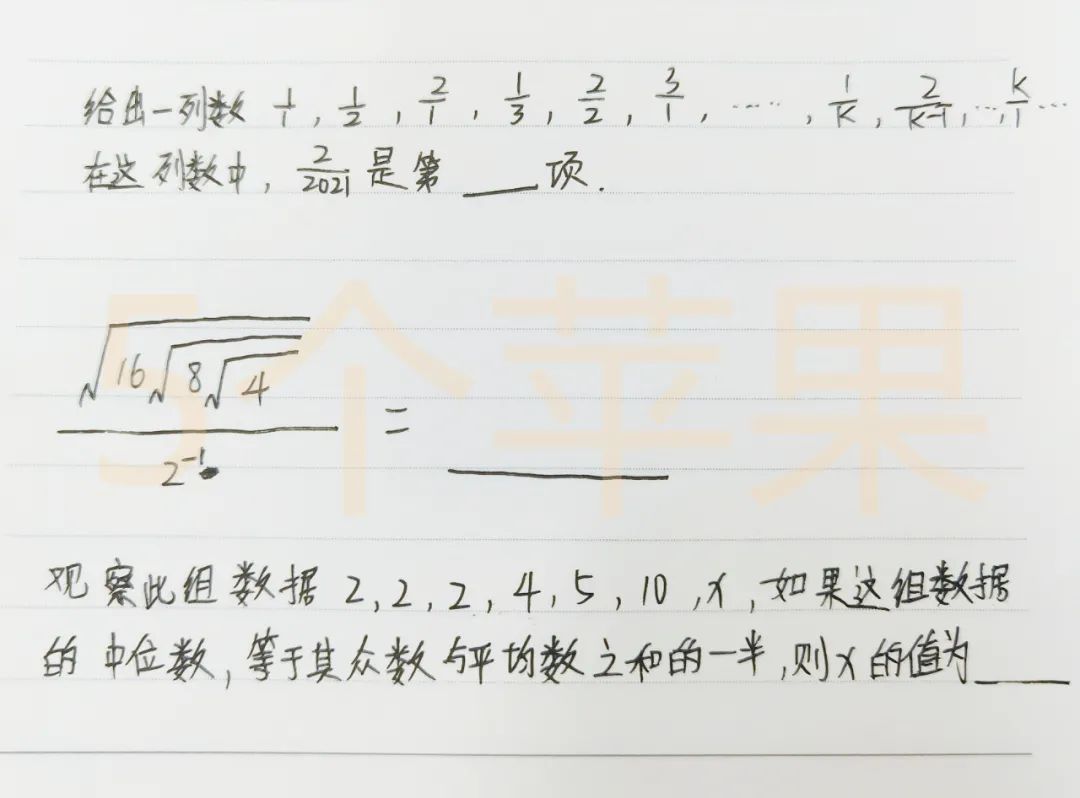 给出一列数 1/1, 1/2, 2/1, 1/3, 2/2, 3/1, ……, 1/K, 2/K-1, …, K/1 …
在这列数中, 2/2021 是第 ____ 项.
√(16√(8√4)) / 2⁻¹ = ____
5个苹果
观察此组数据 2, 2, 2, 4, 5, 10, x, 如果这组数据
的中位数, 等于其众数与平均数之和的一半, 则x的值为____